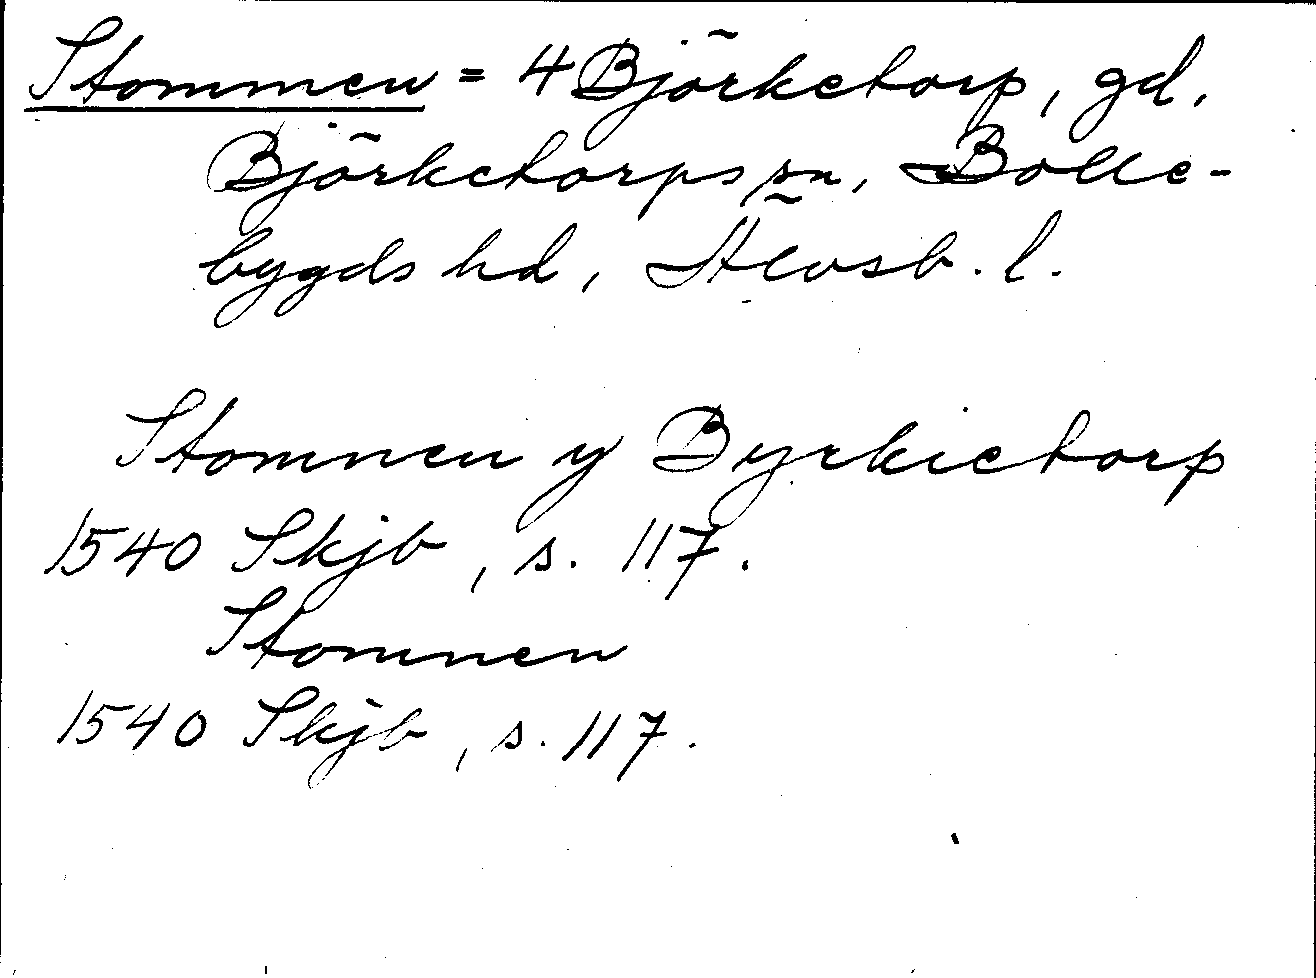 Stommen = 4 Björketorp, gd,
Björketorps sn, Bolle-
bygds hd, Älvsb. l.
Stomnen y Byrkietorp
1540 Skjb, s. 117.
Stomnen
1540 Skjb, s. 117.